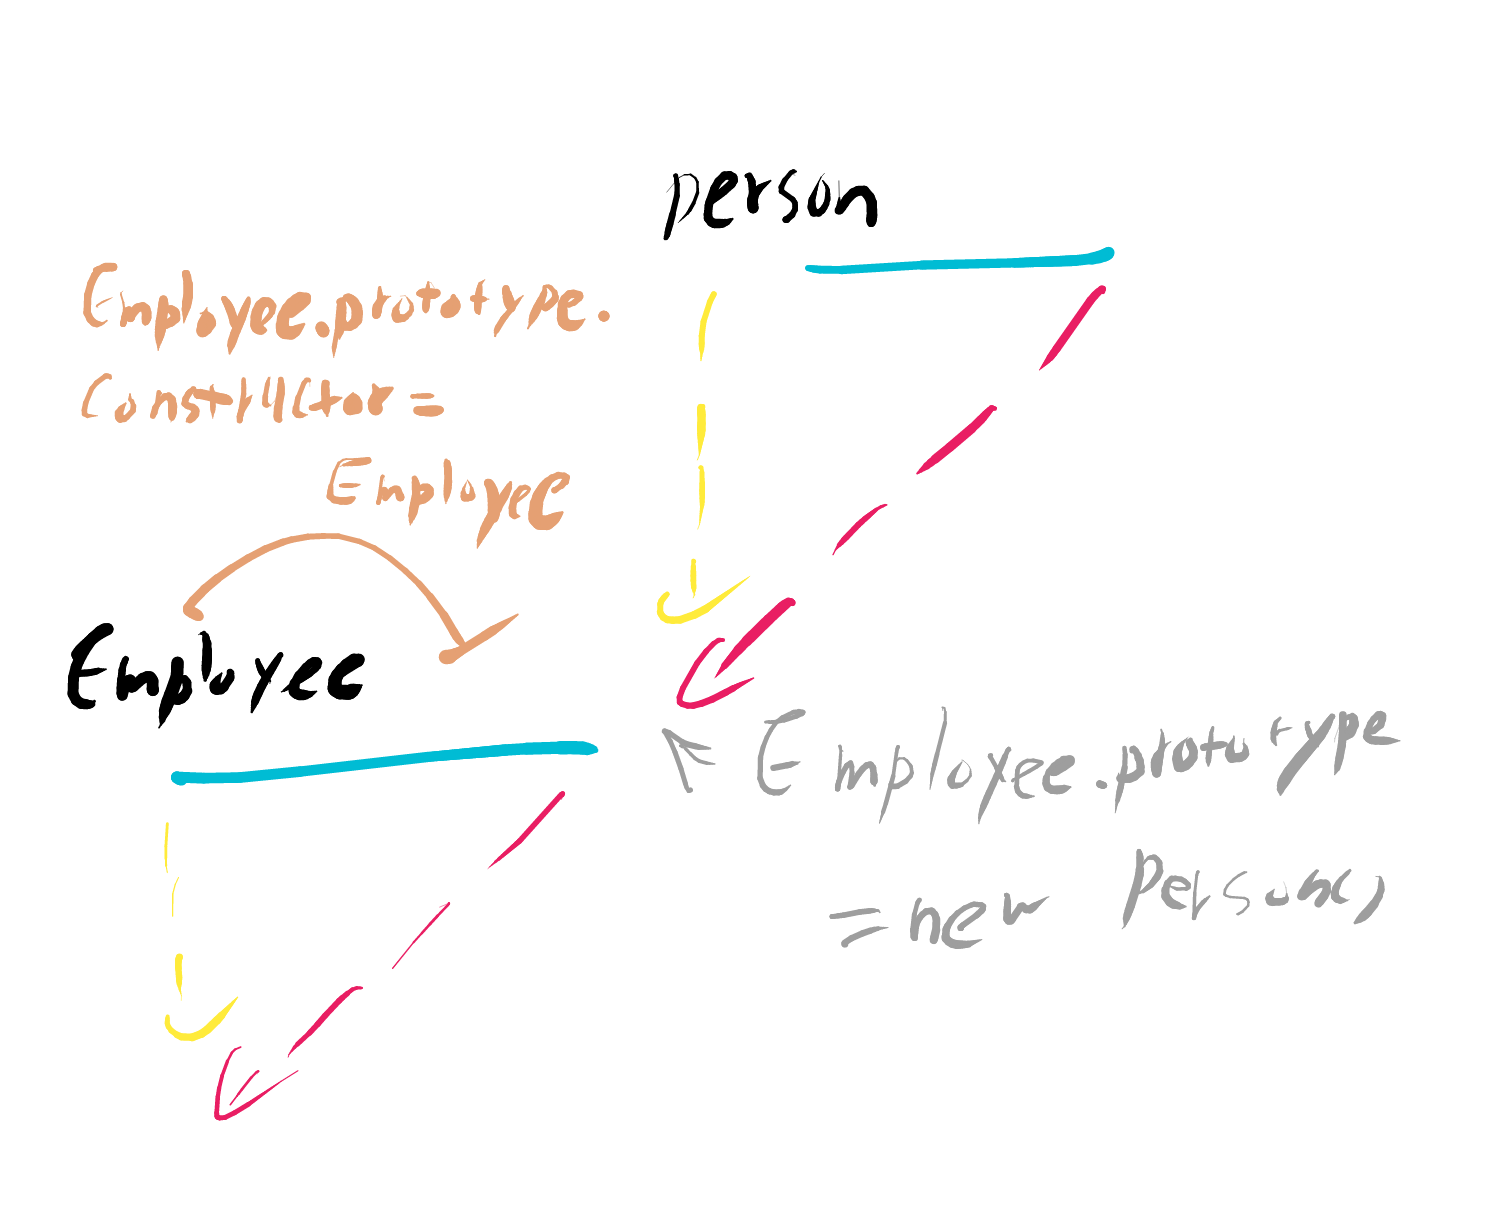 person
Employee.prototype.
Constructor =
Employee
Employee
Employee.prototype
= new Person()